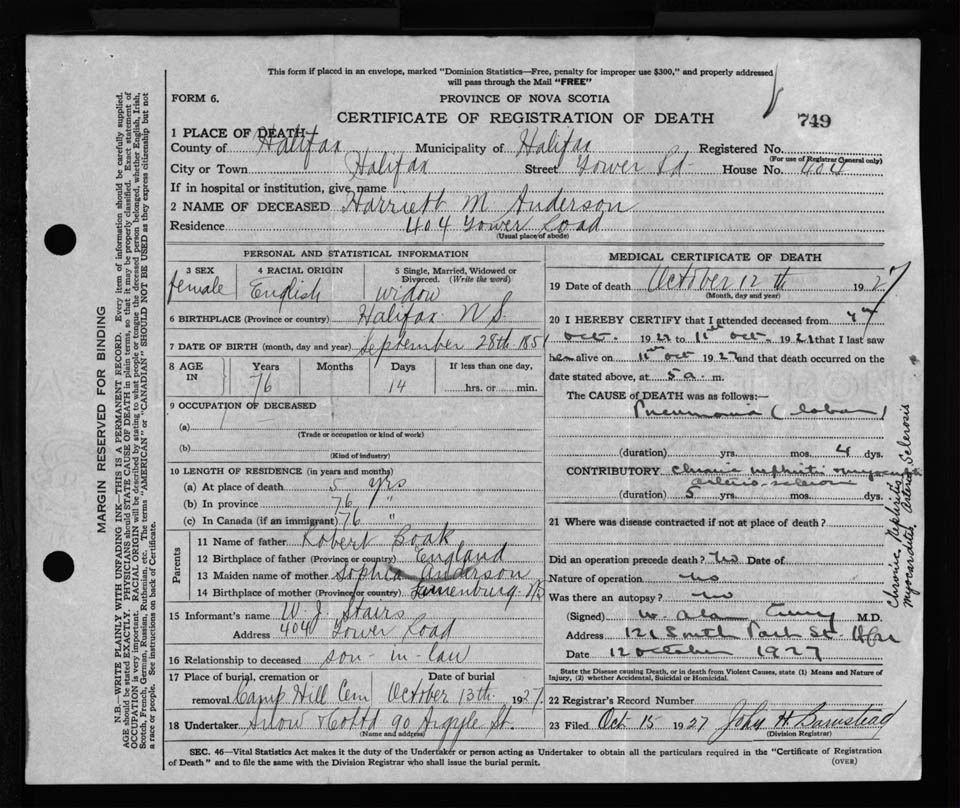 This form if placed in an envelope, marked "Dominion Statistics—Free, penalty for improper use $300," and properly addressed
will pass through the Mail "FREE"
FORM 6.
PROVINCE OF NOVA SCOTIA
CERTIFICATE OF REGISTRATION OF DEATH
749
1 PLACE OF DEATH—
County of Halifax Municipality of Halifax Registered No.
(For use of Registrar General only)
City or Town Halifax Street Tower Rd. House No. 404
If in hospital or institution, give name
2 NAME OF DECEASED Harriett M. Anderson
Residence 404 Tower Road
(Usual place of abode)
PERSONAL AND STATISTICAL INFORMATION
3 SEX female
4 RACIAL ORIGIN English
5 Single, Married, Widowed or Divorced. (Write the word) widow
6 BIRTHPLACE (Province or country) Halifax N.S.
7 DATE OF BIRTH (month, day and year) September 28th 1851
8 AGE IN Years 76 Months Days 14 If less than one day, hrs. or min.
9 OCCUPATION OF DECEASED
(a)
(Trade or occupation or kind of work)
(b)
(Kind of industry)
10 LENGTH OF RESIDENCE (in years and months)
(a) At place of death 5 yrs
(b) In province 76 "
(c) In Canada (if an immigrant) 76 "
Parents
11 Name of father Robert Boak
12 Birthplace of father (Province or country) England
13 Maiden name of mother Sophia Anderson
14 Birthplace of mother (Province or country) Lunenburg N.S
15 Informant's name W. J. Stairs
Address 404 Tower Road
16 Relationship to deceased son-in-law
17 Place of burial, cremation or removal Camp Hill Cem Date of burial October 13th 1927
18 Undertaker Snow & Co Ltd 90 Argyle St.
(Name and address)
MEDICAL CERTIFICATE OF DEATH
19 Date of death October 12th 1927
(Month, day and year)
20 I HEREBY CERTIFY that I attended deceased from
Oct. 1927 to 11th Oct. 1927 that I last saw
her alive on 11th Oct 1927 and that death occurred on
date stated above, at 5 a. m.
The CAUSE of DEATH was as follows:—
Pneumonia (lobar)
(duration) yrs. mos. 4 dys.
CONTRIBUTORY chronic nephritis myocarditis
arterio-sclerosis
(duration) 5 yrs. mos. dys.
Chronic Nephritis
myocarditis, Arterio Sclerosis
21 Where was disease contracted if not at place of death?
Did an operation precede death? no Date of
Nature of operation no
Was there an autopsy? no
(Signed) W. Alan Curry M.D.
Address 121 South Park St. Hfx
Date 12 October 1927
State the Disease causing Death, or in death from Violent Causes, state (1) Means and Nature of
Injury, (2) whether Accidental, Suicidal or Homicidal.
22 Registrar's Record Number
23 Filed Oct 15 1927 John H Barnstead
(Division Registrar)
SEC. 46—Vital Statistics Act makes it the duty of the Undertaker or person acting as Undertaker to obtain all the particulars required in the "Certificate of Registration
of Death" and to file the same with the Division Registrar who shall issue the burial permit.
(OVER)
MARGIN RESERVED FOR BINDING
N.B.—WRITE PLAINLY WITH UNFADING INK—THIS IS A PERMANENT RECORD. Every item of information should be carefully supplied.
AGE should be stated EXACTLY. PHYSICIANS should STATE CAUSE OF DEATH in plain terms, so that it may be properly classified. Exact statement of
OCCUPATION is very important. RACIAL ORIGIN will be described by stating to what people or tongue the deceased person belonged, whether English, Irish,
Scotch, French, German, Russian, Ruthenian, etc. The terms "AMERICAN" or "CANADIAN" SHOULD NOT BE USED as they express citizenship but not
a race or people. See instructions on back of Certificate.